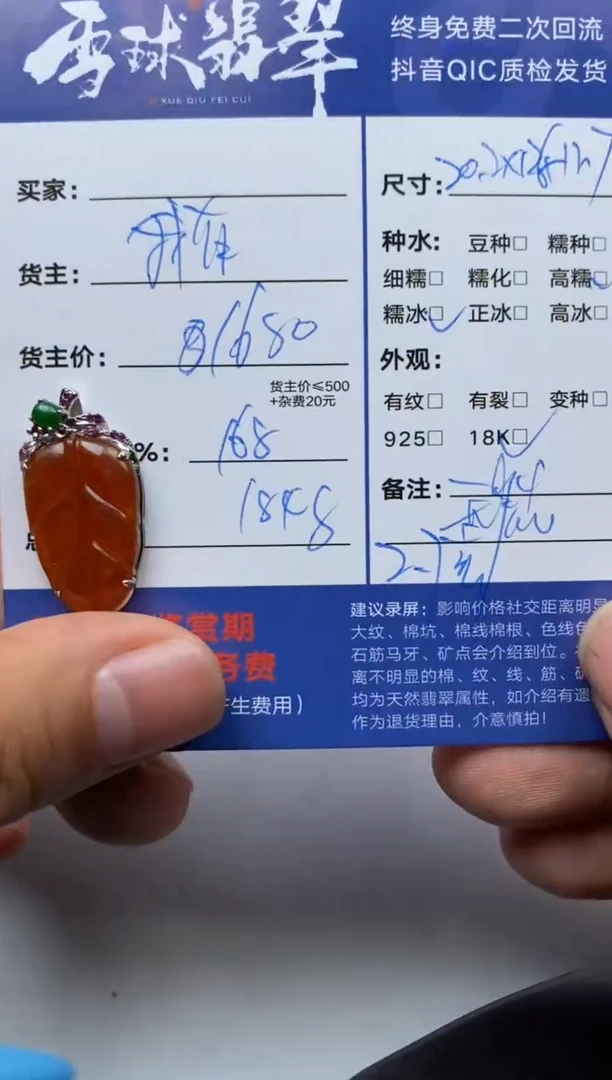 雪球翡翠
XUE QIU FEI CUI
终身免费二次回流
抖音QIC质检发货
买家：
货主：
货主价：
1680
货主价≤500
+杂费20元
%：
168
尺寸：
种水： 豆种□ 糯种□
细糯□ 糯化□ 高糯□
糯冰□ 正冰□ 高冰□
外观：
有纹□ 有裂□ 变种□
925□ 18K□
备注：
鉴赏期
务费
产生费用）
建议录屏：影响价格社交距离明显
大纹、棉坑、棉线棉根、色线色
石筋马牙、矿点会介绍到位。
离不明显的棉、纹、线、筋、矿
均为天然翡翠属性，如介绍有遗
作为退货理由，介意慎拍！